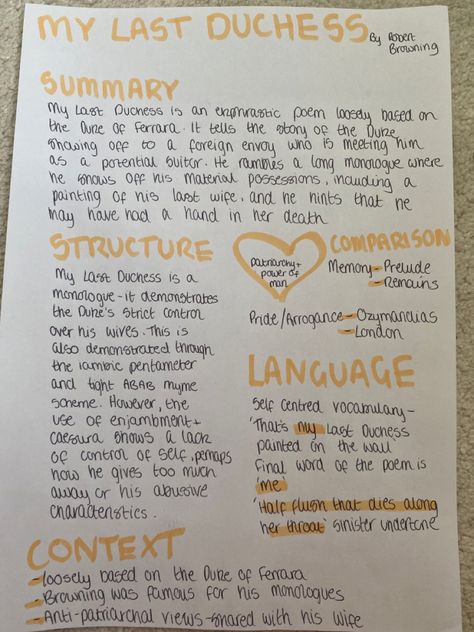 MY LAST DUCHESS
By Robert
Browning
SUMMARY
My Last Duchess is an ekphrastic poem loosely based on
the Duke of Ferrara. It tells the story of the Duke
showing off to a foreign envoy who is meeting him
as a potential suitor. He rambles a long monologue where
he shows off his material possessions, including a
painting of his last wife, and he hints that he
may have had a hand in her death
STRUCTURE
My Last Duchess is a
monologue - it demonstrates
the Duke's strict control
over his wives. This is
also demonstrated through
the iambic pentameter
and tight ABAB rhyme
scheme. However, the
use of enjambment +
caesura shows a lack
of control of self, perhaps
how he gives too much
away or his abusive
characteristics.
patriarchy +
power of
man
COMPARISON
Memory - Prelude
- Remains
Pride/Arrogance - Ozymandias
- London
LANGUAGE
Self centred vocabulary -
'That's my Last Duchess
painted on the wall
Final word of the poem is
'me'
'Half flush that dies along
her throat' sinister undertone
CONTEXT
- loosely based on the Duke of Ferrara
- Browning was famous for his monologues
- Anti-patriarchal views - shared with his wife